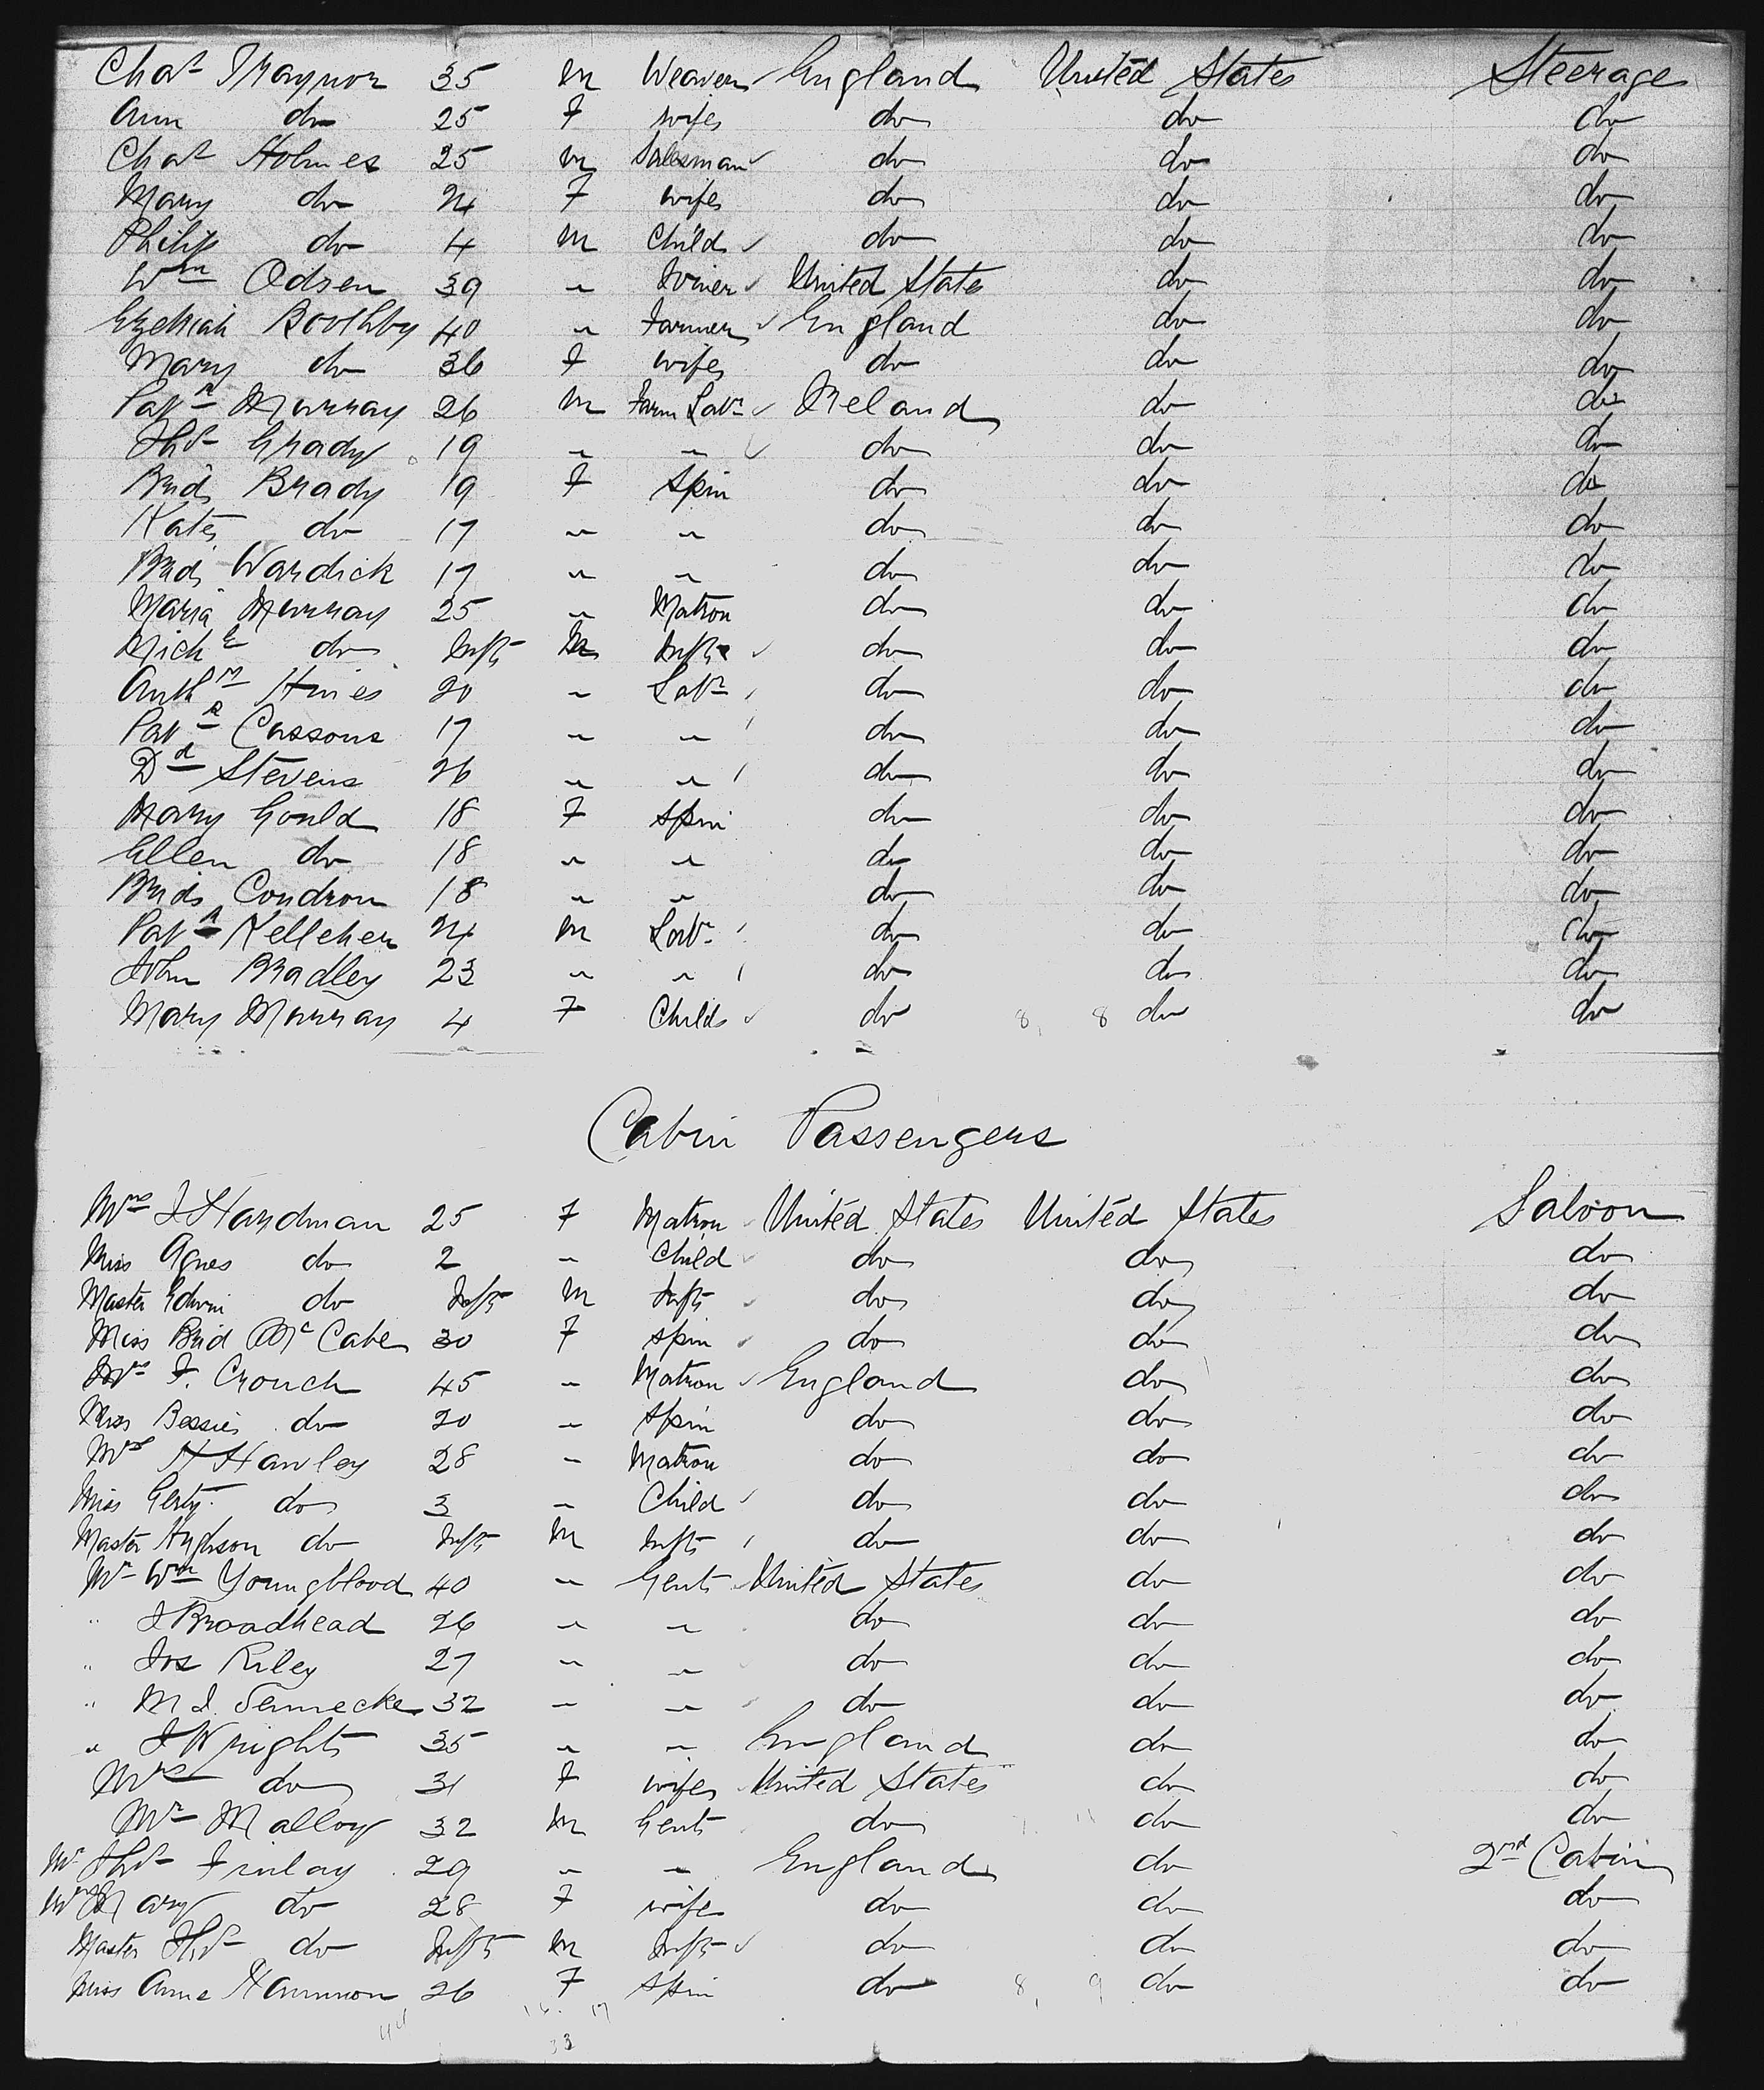 Chas Traynor 35 m Weaver England United States Steerage
Ann do 25 F wife do do do
Chas Holmes 25 m Salesman do do do
Mary do 24 F wife do do do
Philip do 4 m Child do do do
Wm Odsen 39 " Joiner United States do do
Ezekiah Boothby 40 " Farmer England do do
Mary do 36 F wife do do do
Patk Murray 26 m Farm Labr Ireland do do
Thos Grady 19 " " do do do
Brid Brady 19 F Spin do do do
Kate do 17 " " do do do
Brid Wardick 17 " " do do do
Maria Murray 25 " Matron do do do
Michl do Inft m Inft do do do
Anthy Hines 20 " Labr do do do
Patk Cassons 17 " " do do do
Dd Stevens 26 " " do do do
Mary Gould 18 F Spin do do do
Ellen do 18 " " do do do
Brid Condron 18 " " do do do
Patk Kelleher 24 m Labr do do do
John Bradley 23 " " do do do
Mary Murray 4 F Child do 8, 8 do do
Cabin Passengers
Mrs J Hardman 25 F Matron United States United States Saloon
Miss Agnes do 2 " Child do do do
Master Edwin do Inft m Inft do do do
Miss Brid McCabe 30 F Spin do do do
Mrs F. Crouch 45 " Matron England do do
Miss Bessie do 20 " Spin do do do
Mrs H Hawley 28 " Matron do do do
Miss Gerty do 3 " Child do do do
Master do Inft m Inft do do do
Mr Wm Youngblood 40 " Gent United States do do
" J Broadhead 26 " " do do do
" Jos Riley 27 " " do do do
" M J. 32 " " do do do
" J Wright 35 " " England do do
Mrs do 31 F wife United States do do
Mr Malloy 32 m Gent do do do
Mr Thos Finlay 29 " " England do 2nd Cabin
Mrs Mary do 28 F wife do do do
Master Thos do Inft m Inft do do do
Miss Anne Hammon 26 F Spin do 8, 9 do do
44 16. 17
33